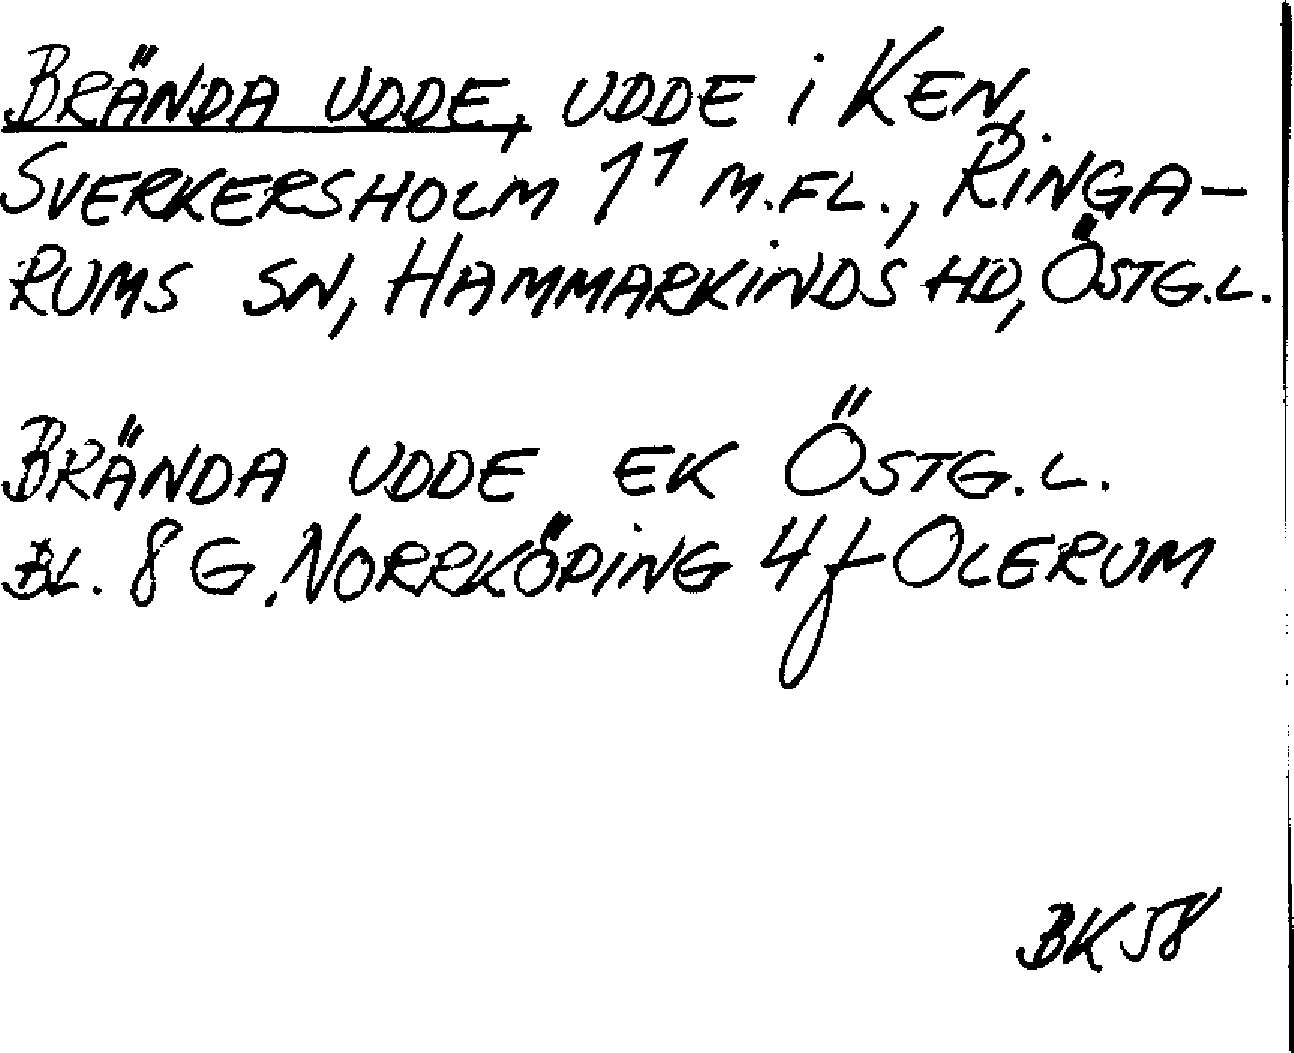 BRÄNDA UDDE, UDDE i KEN,
SVERKERSHOLM 1¹ M.FL., RINGA-
RUMS SN, HAMMARKINDS HD, ÖSTG.L.
BRÄNDA UDDE EK ÖSTG.L.
BL. 8 G, NORRKÖPING 4f OLERUM
BK 58